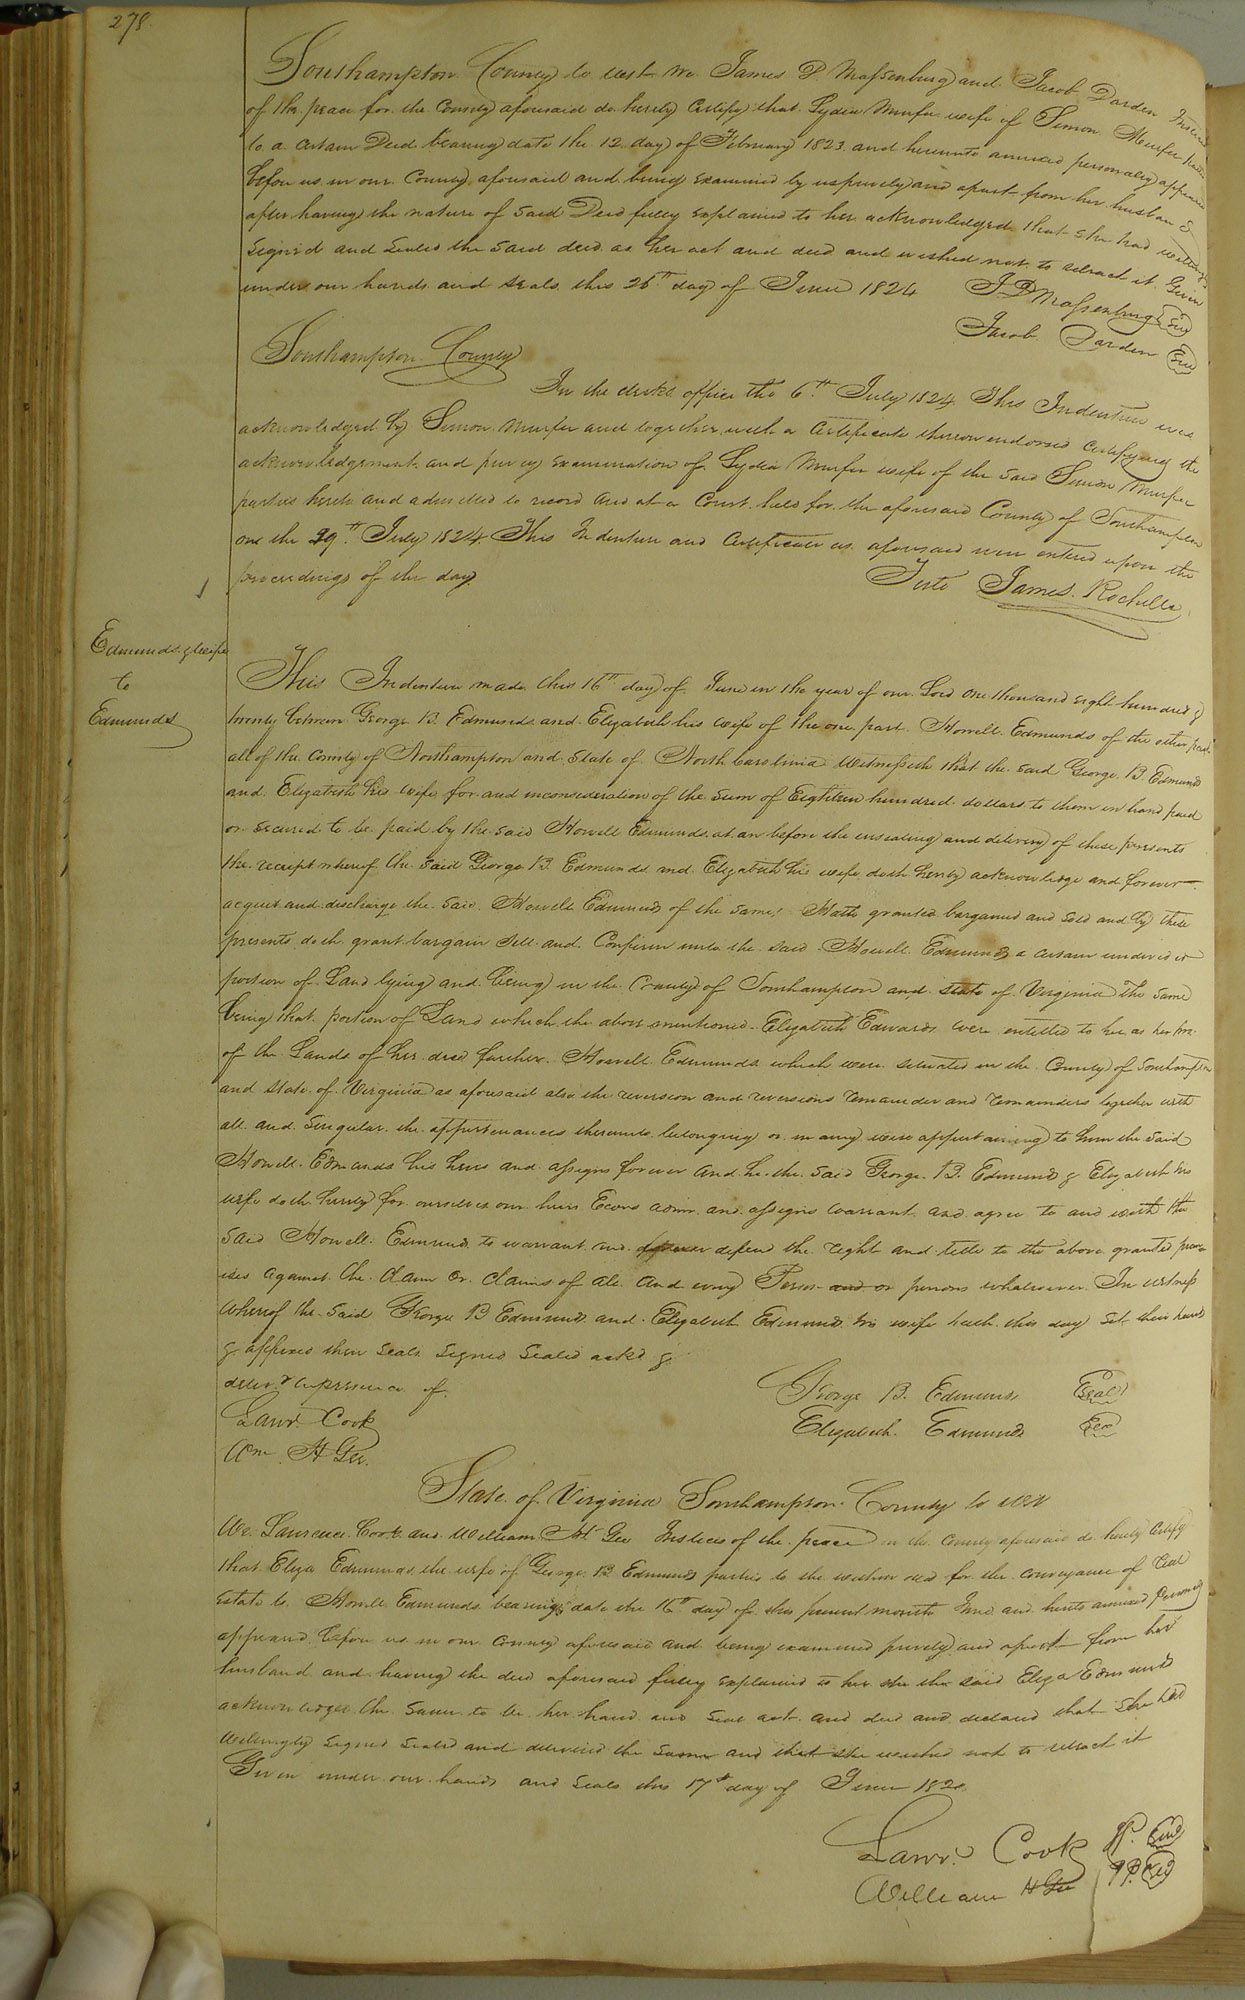 278.
Southampton County to wit We James D Massenburg and Jacob Darden Justices
of the peace for the County aforesaid do hereby certify that Lydia Murfee wife of Simon Murfee parties
to a certain Deed bearing date the 12 day of February 1823. and hereunto annexed personally appeared
before us in our County aforesaid and being examined by us privily and apart from her husband &
after having the nature of said Deed fully explained to her acknowledged that she had willingly
signed and sealed the said deed as her act and deed and wished not to retract it. Given
under our hands and seals this 26th day of June 1824
J D Massenburg Seal
Jacob Darden Seal
Southampton County
In the clerks office the 6th July 1824. This Indenture was
acknowledged by Simon Murfee and together with a Certificate thereon endorsed certifying the
acknowledgement and privy examination of Lydia Murfee wife of the said Simon Murfee
parties hereto and admitted to record and at a Court held for the aforesaid County of Southampton
on the 29th July 1824. This Indenture and Certificate as aforesaid were entered upon the
proceedings of the day
Teste James Rochelle
Edmunds & wife
to
Edmunds
This Indenture made this 16th day of June in the year of our Lord one thousand eight hundred &
twenty between George B. Edmunds and Elizabeth his wife of the one part Howell Edmunds of the other part
all of the County of Northampton and State of North Carolinia Witnesseth that the said George B. Edmunds
and Elizabeth his wife for and inconsideration of the sum of Eighteen hundred dollars to them in hand paid
or secured to be paid by the said Howell Edmunds at an before the ensealing and delivery of these presents
the receipt whereof the said George B. Edmunds and Elizabeth his wife doth hereby acknowledge and forever
acquit and discharge the said Howell Edmunds of the same, Hath granted bargained and sold and by these
presents doth grant bargain sell and Confirm unto the said Howell Edmunds a certain undivided
portion of Land lying and being in the County of Southampton and state of Virginia the same
being that portion of Land which the above mentioned Elizabeth Edwards were entitled to her as her
of the Lands of her decd farther Howell Edmunds which were situated in the County of Southampton
and State of Virginia as aforesaid also the reversion and reversions remainder and remainders together with
all and singular the appurtenances thereunto belonging or in any wise appertaining to him the said
Howell Edmunds his heirs and assigns forever and he the said George B. Edmunds & Elizabeth his
wife doth hereby for ourselves our heirs Exors admr. and assigns warrant and agree to and with the
said Howell Edmunds to warrant and forever defend the right and title to the above granted prem-
ises against the claim or claims of all and every Person and or persons whatsoever In witness
whereof the said George B Edmunds and Elizabeth Edmunds his wife hath this day set their hands
& affixed their seals signed sealed ackd &
delivd in presence of.
Lawr. Cook
Wm H Gee.
George B. Edmunds Seal
Elizabeth Edmunds Seal
State of Virginia Southampton County to wit
We Laurence Cook and William H Gee Justices of the peace in the County aforesaid do hereby certify
that Eliza Edmunds the wife of George B Edmunds parties to the within deed for the conveyance of real
estate to Howell Edmunds bearing date the 16th day of this present month June and hereto annexed personally
appeared before us in our County aforesaid and being examined privily and apart from her
husband and having the deed aforesaid fully explained to her she the said Eliza Edmunds
acknowledged the same to be her hand and seal act and deed and declared that she had
willingly signed sealed and delivered the same and that she wished not to retract it
Given under our hands and seals this 17th day of June 1820.
Lawr. Cook JP. Seal
William H Gee JP. Seal